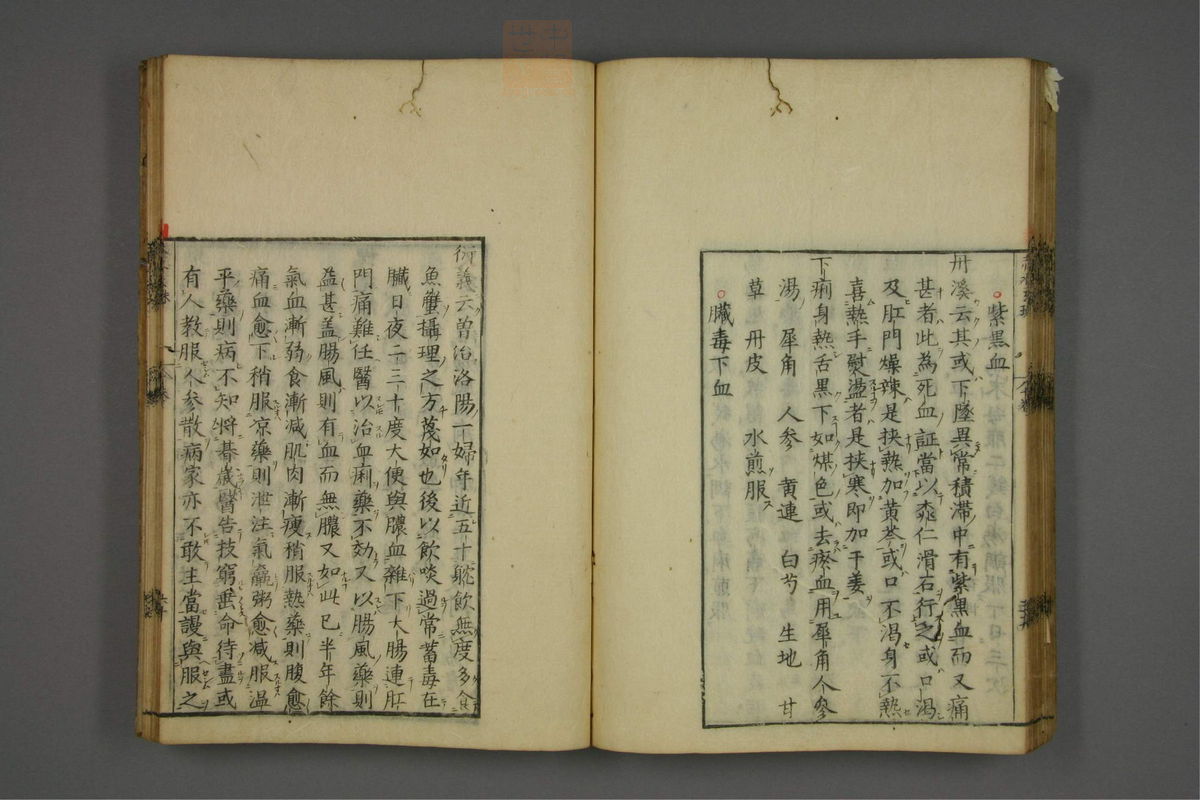 紫黒血
丹溪云其或下墜異常積滯中有紫黒血而又痛
甚者此為死血証當以桃仁滑石行之或口渴
及肛門燥辣是挾熱加黄芩或口不渴身不熱
喜熱手熨盪者是挾寒即加干姜
下痢身熱舌黒下如煤色或去瘀血用犀角人参
湯 犀角 人参 黄連 白芍 生地 甘
草 丹皮 水煎服ス
臓毒下血
衍義云曽治洛陽一婦年近五十躭飲無度多食
魚蟹攝理之方蔑如也後以飲啖過常蓄毒在
臓日夜二三十度大便與膿血雜下大腸連肛
門痛難任醫以治血痢藥不効又以腸風藥則
益甚盖腸風則有血而無膿又如此已半年餘
氣血漸弱食漸减肌肉漸瘦稍服熱藥則腹愈
痛血愈下稍服凉藥則泄注氣羸粥愈减服温
平藥則病不知將朞歳醫告技窮垂命待盡或
有人教服人参散病家亦不敢主當謾與服之